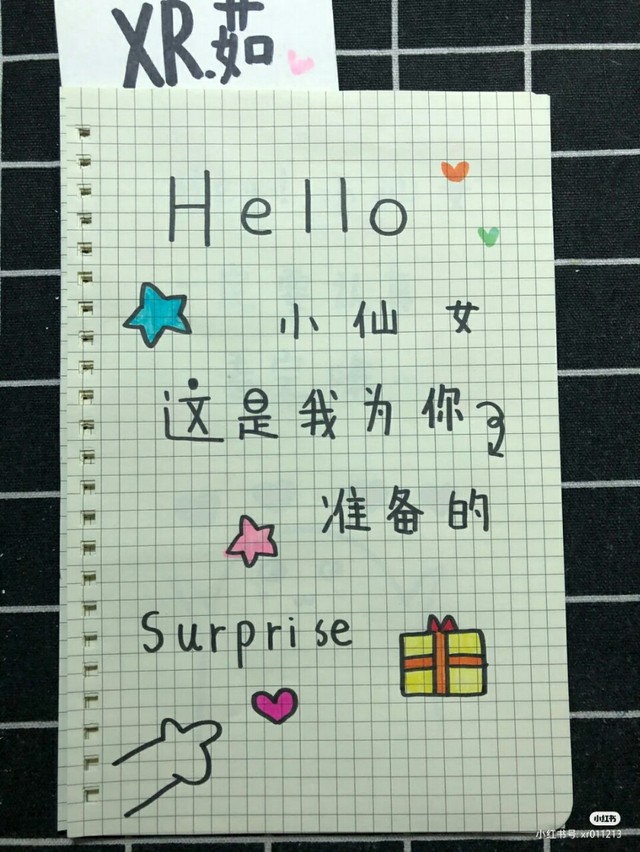 XR.茹
Hello
小仙女
这是我为你
准备的
Surprise
小红书
小红书号: xr011213